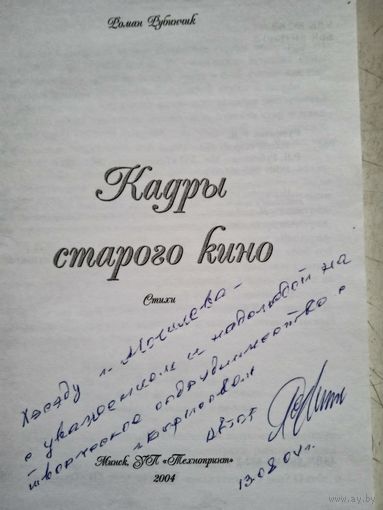 Роман Рубинчик
Кадры
старого кино
Стихи
Хэсэду г. Могилева -
с уважением и надеждой на
творческое сотрудничество с
Автор
13.08.04 г.
Минск, УП «Технопринт»
2004
www.ay.by